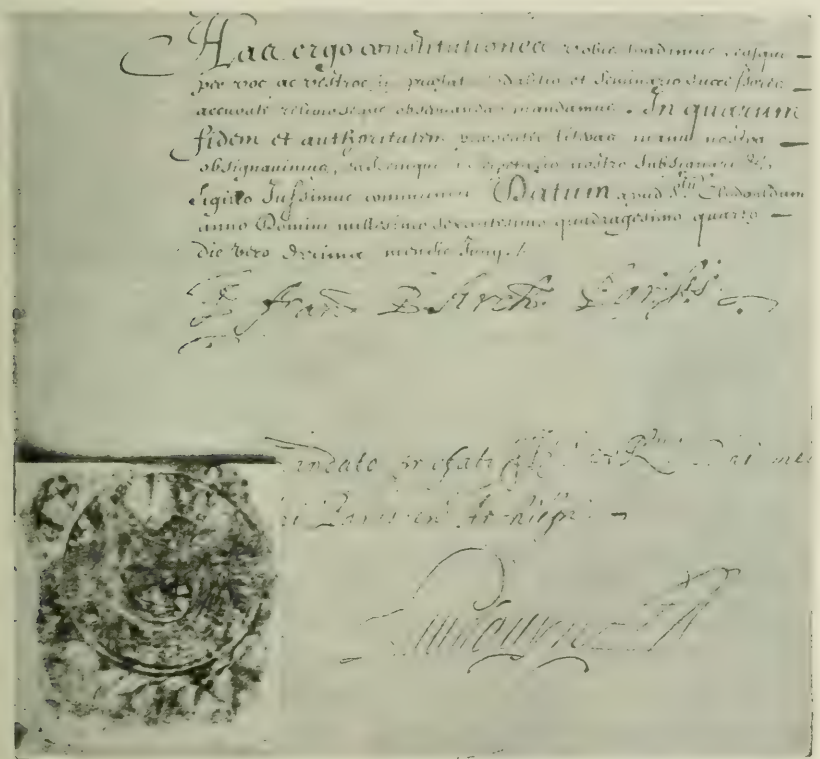 Hac ergo constitutiones vobis tradimus, easque
per vos ac vestros in præfat sodalitio et Seminario successores
accurate religioseque observandas mandamus. In quorum
fidem et authoritatem præsentes litteras manu nostra
obsignavimus, easdemque nostro subsignari
sigillo Jussimus communiri Datum apud Stum Clodoaldum
anno Domini millesimo sexcentesimo quadragesimo quarto
die vero decima mensis Junij
J. fran. P. Arch. Parisis.
De mandato præfati Illmi ac Rmi Dni mei
Dni Parisien Archiepi